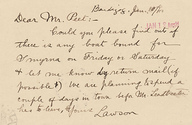 Bardizag, Jan. 10/
Dear Mr. Peet:-
Could you please find out if
there is any boat bound for
Smyrna on Friday or Saturday
& let me know by return mail (if
possible)? We are planning to spend a
couple of days in town before Mr. Lindblom
has to leave. Yours
Lawson
JAN 12